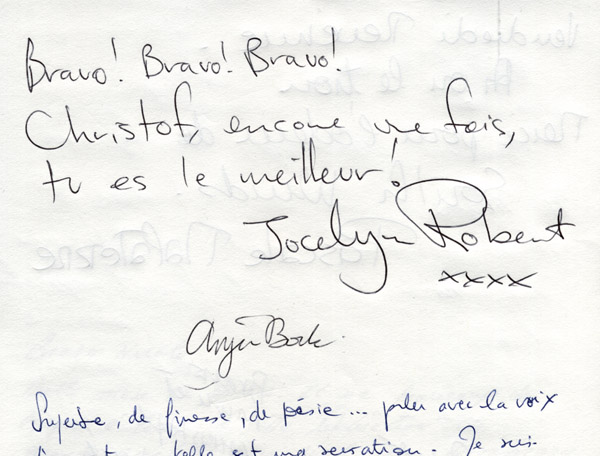 Bravo! Bravo! Bravo!
Christof, encore une fois,
tu es le meilleur!
Jocelyn Robert
xxxx
de finesse, de poésie... parler avec la voix
telle est ma sensation. Je suis